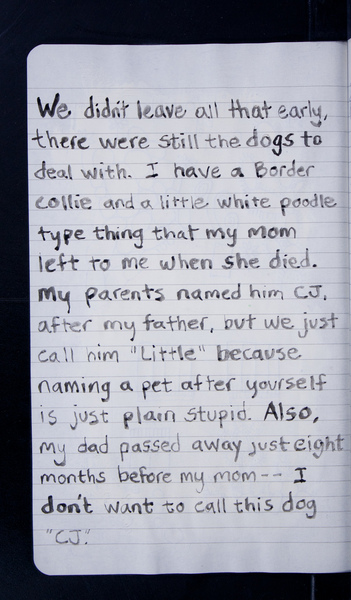 We didn't leave all that early,
there were still the dogs to
deal with. I have a Border
collie and a little white poodle
type thing that my mom
left to me when she died.
My parents named him CJ,
after my father, but we just
call him "Little" because
naming a pet after yourself
is just plain stupid. Also,
my dad passed away just eight
months before my mom -- I
don't want to call this dog
"CJ."